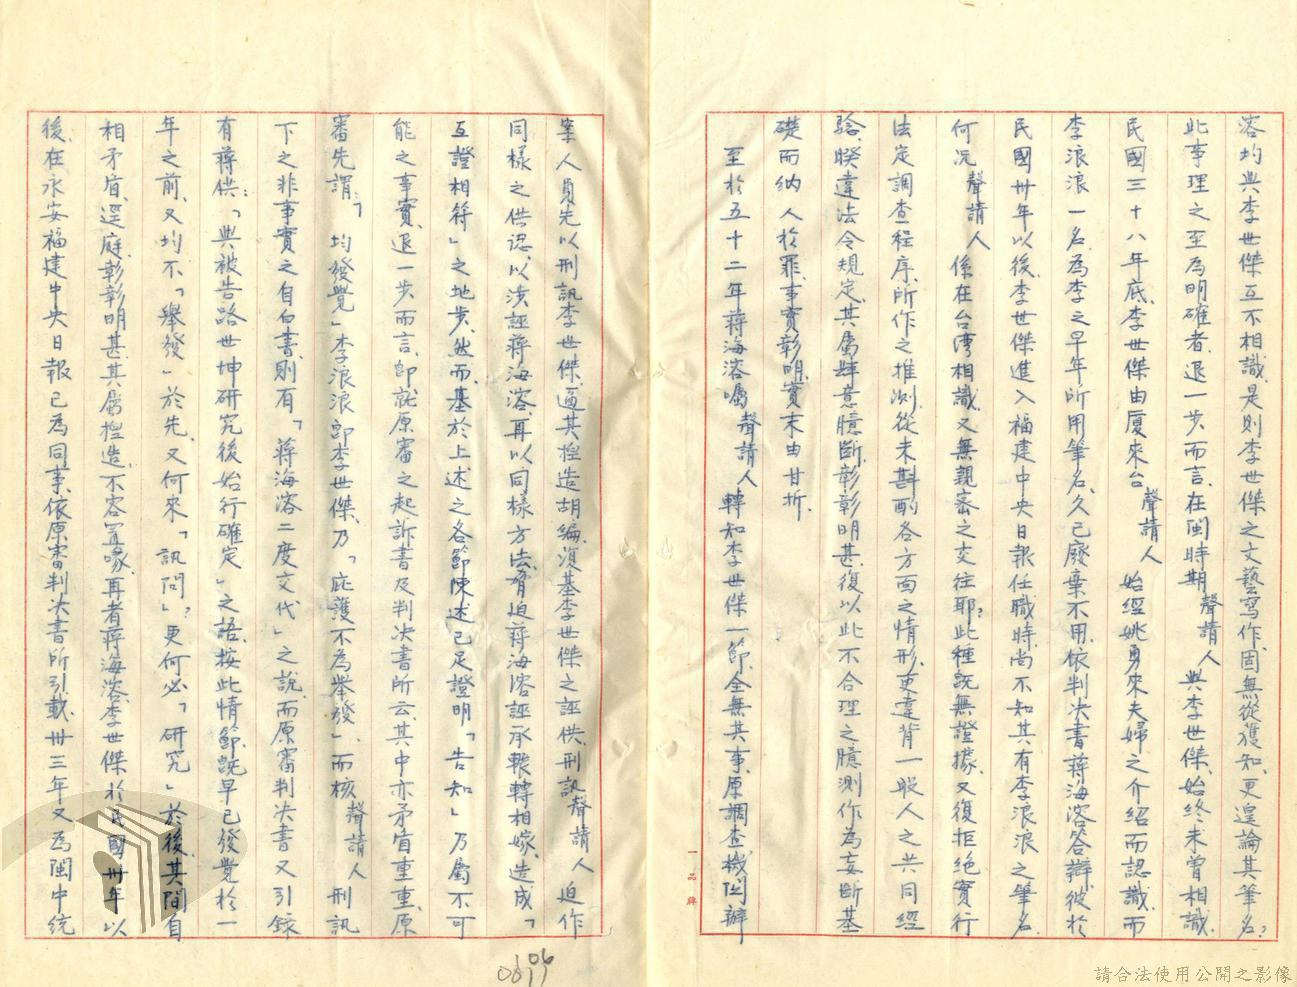 容均與李世傑互不相識是則李世傑之文藝寫作固無從獲知更遑論其筆名？
此事理之至為明確者退一步而言在閩時期聲請人與李世傑始終未曾相識
民國三十八年底李世傑由廈來台聲請人始經姚勇來夫婦之介紹而認識而
李浪浪一名為李之早年所用筆名久已廢棄不用依判决書蔣海溶答辯彼於
民國卅年以後李世傑進入福建中央日報任職時尚不知其有李浪浪之筆名
何况聲請人係在台湾相識又無親密之交往耶？此種既無證據又復拒絕實行
法定調查程序所作之推測從未斟酌各方面之情形更違背一般人之共同經
驗暌違法令規定其屬肆意臆斷彰彰明甚復以此不合理之臆測作為妄斷基
礎而納人於罪事實彰明實未由甘折
至於五十二年蔣海溶囑聲請人轉知李世傑一節全無其事原調查機関辦
案人員先以刑訊李世傑逼其揑造胡編復基李世傑之誣供刑訊聲請人迫作
同樣之供認以誣蔣海溶再以同樣方法脅迫蔣海溶誣承輾轉相嫁造成「
互證相符」之地步然而基於上述之各節陳述已足證明「告知」乃屬不可
能之事實退一步而言卽就原審之起訴書及判决書所云其中亦矛盾重重原
審先謂：「均發覺」李浪浪卽李世傑乃「庇護不為舉發」而核聲請人刑訊
下之非事實之自白書則有「蔣海溶二度交代」之說而原審判决書又引錄
有蔣供：「與被告路世坤研究後始行確定」之語按此情節既早已發覺於一
年之前又均不「舉發」於先又何來「訊問」？更何必「研究」於後其間自
相矛盾逕庭彰彰明甚其屬揑造不容置喙再者蔣海溶李世傑於民國卅年以
後在永安福建中央日報已為同事依原審判决書所引載卅三年又為閩中統
一品牌
06
0699
請合法使用公開之影像